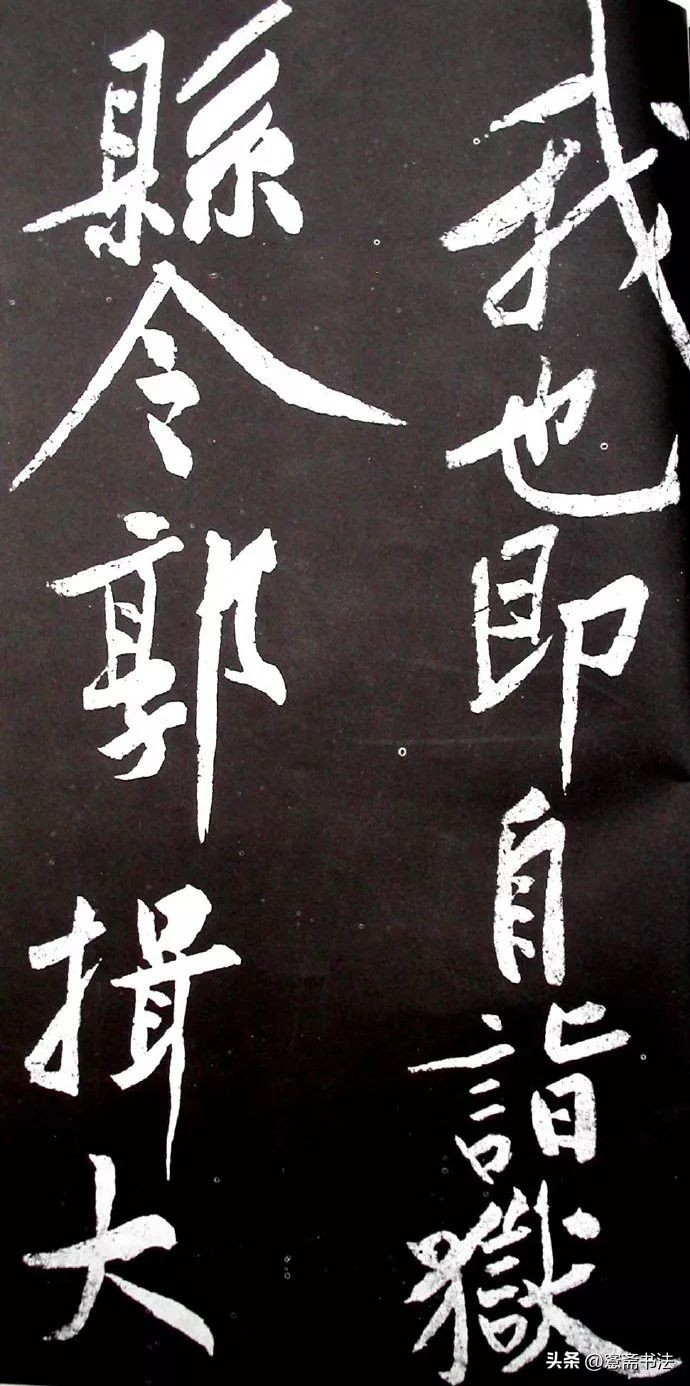 我也即自詣獄
縣令郭揖大
头条 @窓斋书法